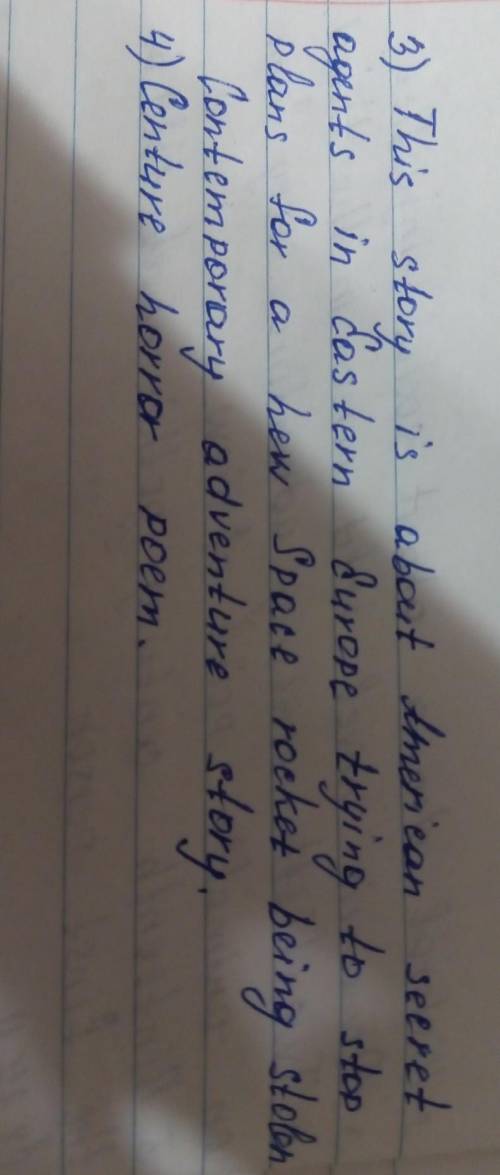 3) This story is about American secret
agents in Eastern Europe trying to stop
plans for a new Space rocket being stolen
Contemporary adventure story.
4) Centure horror poem.